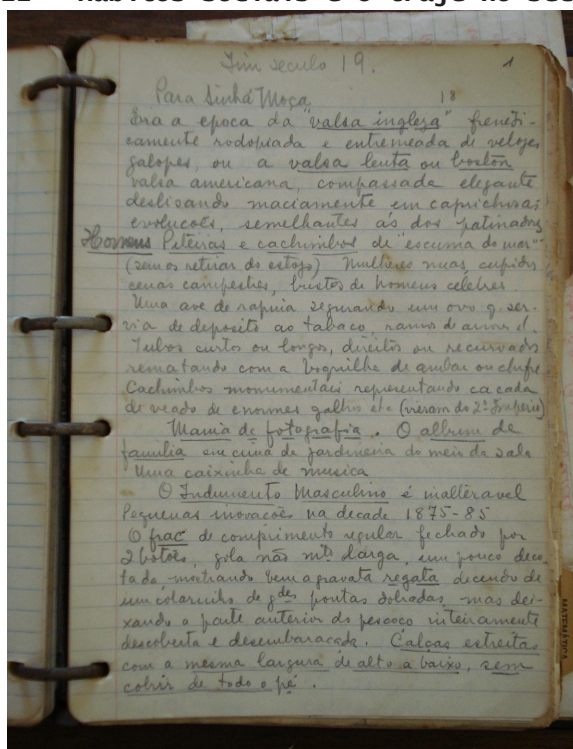 Fim seculo 19.
1
Para Sinhá Moça
18
Era a epoca da "valsa ingleza" freneti-
camente rodopiada e entremeada de velozes
galopes, ou a valsa lenta ou boston
valsa americana, compassada elegante
deslisando maciamente em caprichosas
evoluções, semelhantes ás dos patinadores
Homens Piteiras e cachimbos de "escuma do mar"
(sem os retirar do estojo) Mulheres nuas, cupidos
cenas campestres, bustos de homens célebres
Uma ave de rapina segurando um ovo q. ser-
via de deposito ao tabaco, ramos de
Tubos curtos ou longos, direitos ou recurvados
rematando com a boquilha de ambar ou chifre
Cachimbos monumentais representando caçada
de veado de enormes galhos etc (vieram do 2º Imperio)
Mania de fotografia. O album de
familia em cima da jardineira do meio da sala
Uma caixinha de musica
O Indumento Masculino é inalteravel
Pequenas inovações na decade 1875-85
O frac de comprimento regular fechado por
2 botões, gola não mto larga, um pouco deco-
tada mostrando bem a gravata regata decendo de
um colarinho de gdes pontas dobradas, mas dei-
xando a parte anterior do pescoço inteiramente
descoberta e desembaraçada. Calças estreitas
com a mesma largura de alto a baixo, sem
cobrir de todo o pé.
MATEMÁTICA